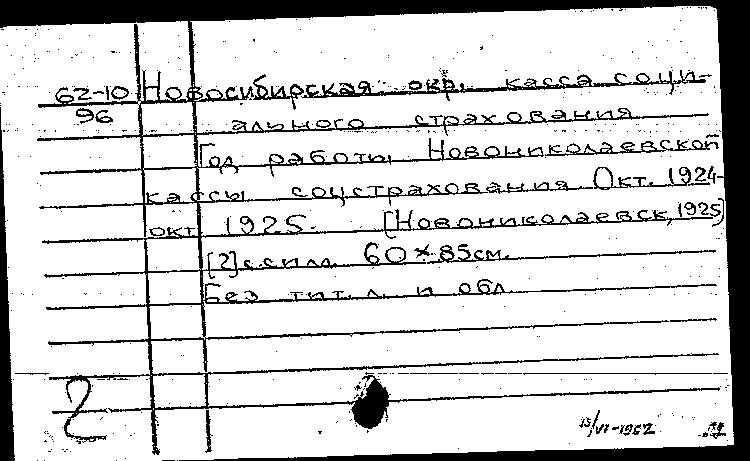 62-10 Новосибирская окр. касса соци-
96 ального страхования
Год работы Новониколаевской
кассы соцстрахования Окт. 1924-
окт 1925. [Новониколаевск, 1925]
[2]с с илл. 60×85см.
Без тит. л. и обл.
2
13/VI-1962